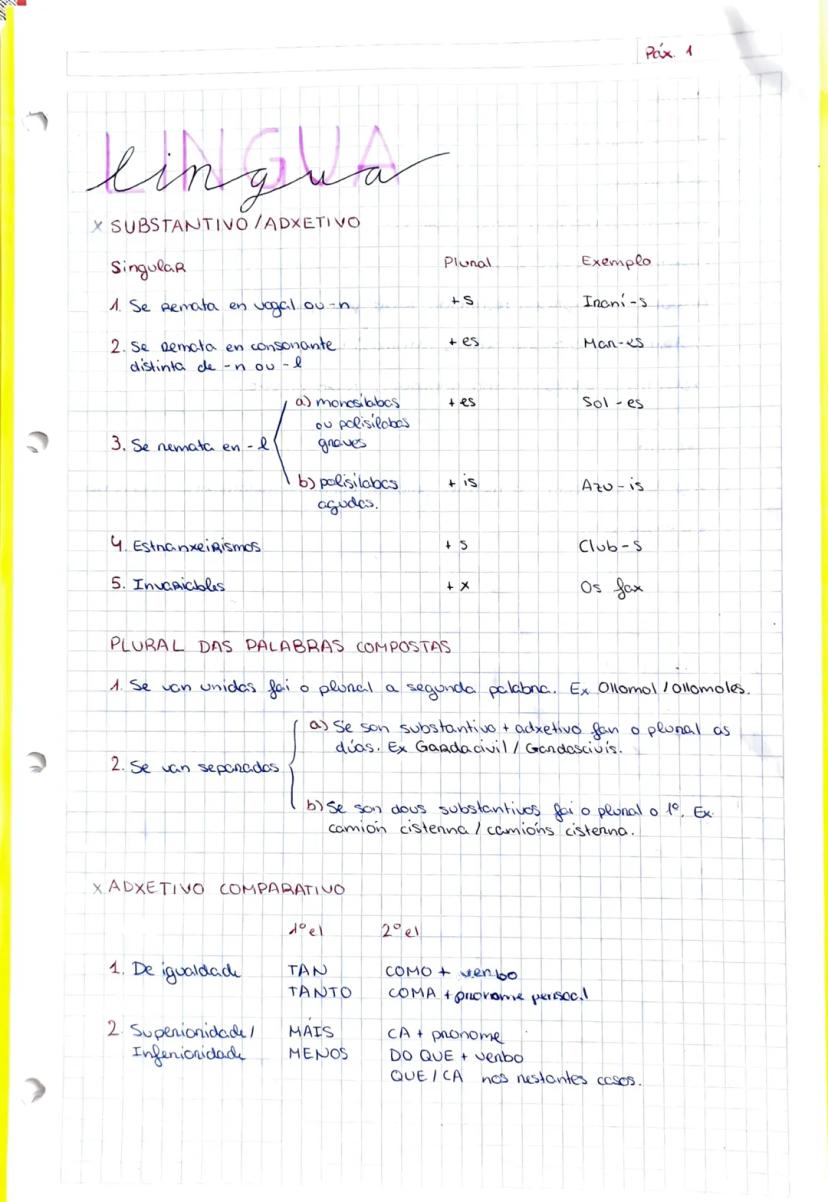 Páx. 1
LINGUA
lingua
x SUBSTANTIVO/ADXETIVO
Singular Plural Exemplo
1. Se remata en vogal ou -n +s Iraní-s
2. Se remata en consonante + es Mar-es
distinta de -n ou -l
a) monosílabos + es Sol - es
ou polisílabos
graves
3. Se remata en -l
b) polisílabos + is Azu-is
agudos.
4. Estranxeirismos + s Club-s
5. Invariables + x Os fax
PLURAL DAS PALABRAS COMPOSTAS
1. Se van unidas fai o plural a segunda palabra. Ex Ollomol / ollomoles.
a) Se son substantivo + adxetivo fan o plural as
dúas. Ex Gardacivil / Gardascivís.
2. Se van separadas
b) Se son dous substantivos fai o plural o 1º. Ex.
camión cisterna / camións cisterna.
x ADXETIVO COMPARATIVO
1º el 2º el
1. De igualdade TAN COMO + verbo
TANTO COMA + pronome persoal
2. Superioridade/ MÁIS CA + pronome
Inferioridade MENOS DO QUE + verbo
QUE / CA nos restantes casos.